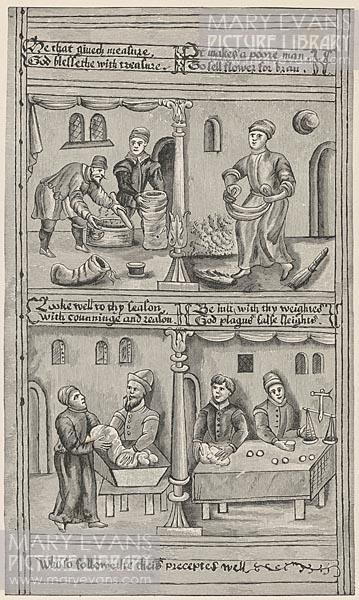 MARY EVANS
PICTURE LIBRARY
He that giueth measure,
God blessethe with treasure.
It makes a poore man
To sell flower for bran.
Looke well to thy season
with counninge and reason
Be iust, with thy weightes
God plagus false sleights.
MARY EVANS
PICTURE LIBRARY
Who so followethe theis preceptes well
www.maryevans.com